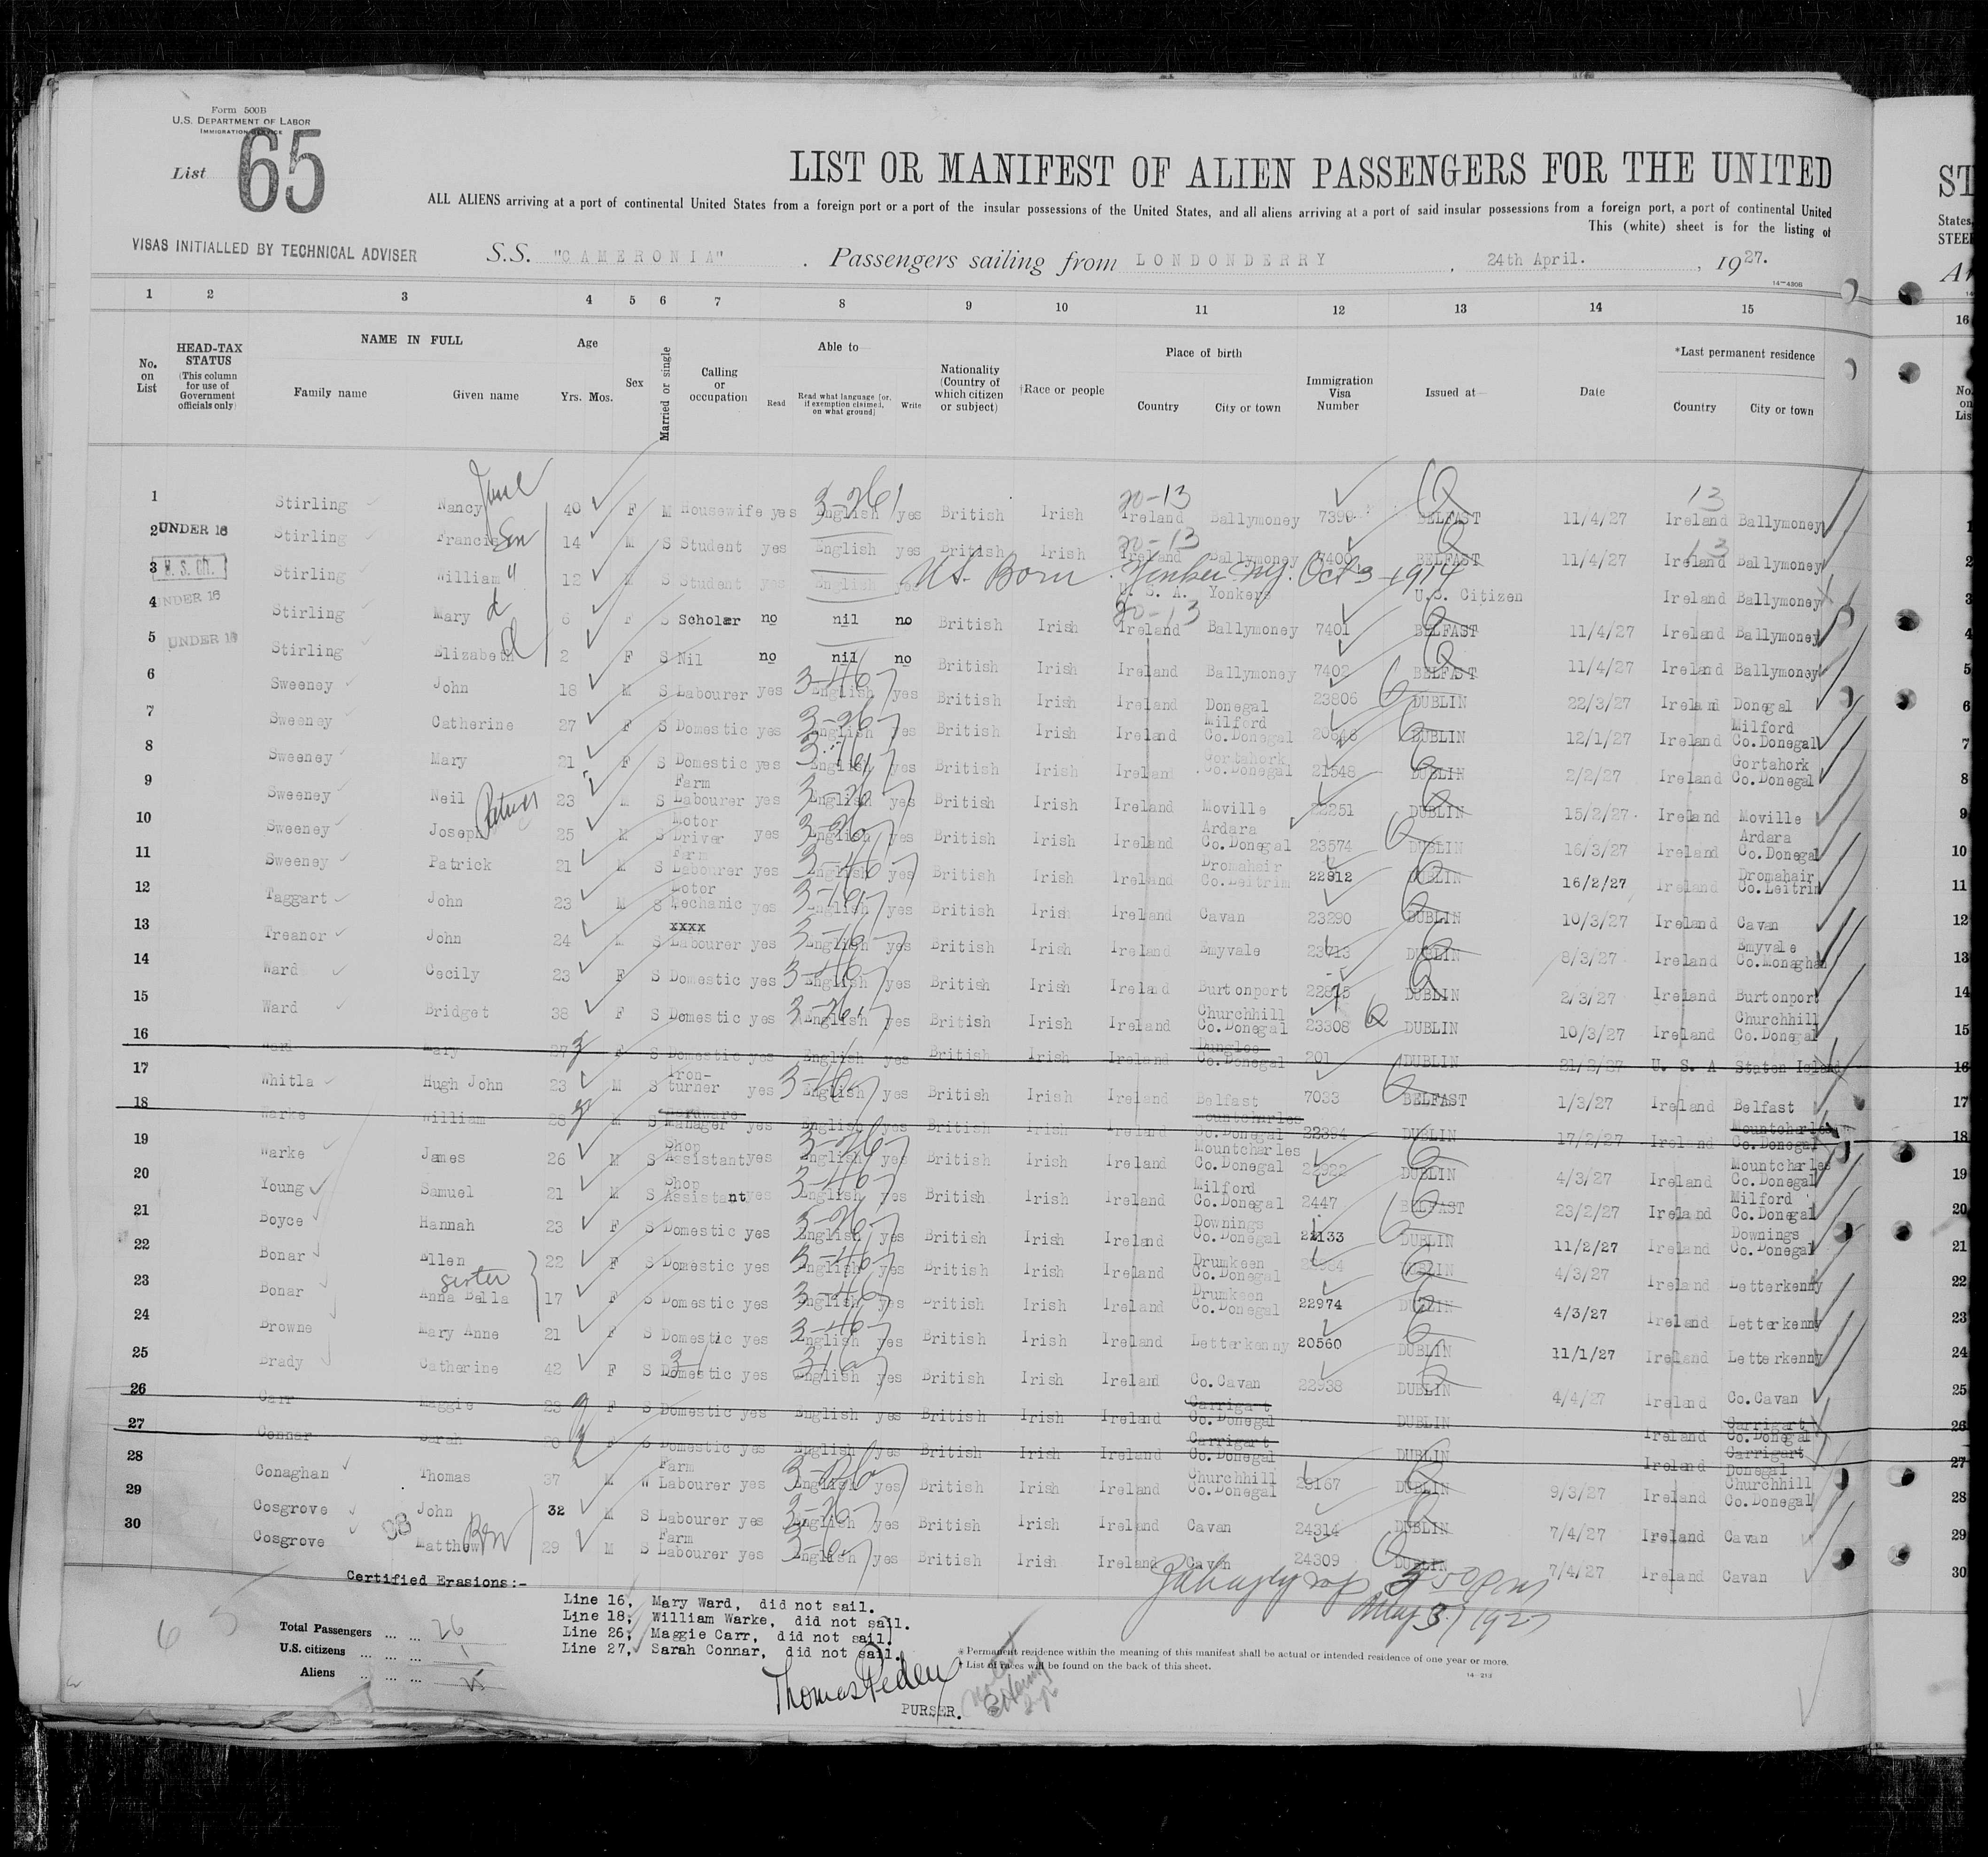 Form 500B
U.S. DEPARTMENT OF LABOR
IMMIGRATION SERVICE
List 65
LIST OR MANIFEST OF ALIEN PASSENGERS FOR THE UNITED
ST
ALL ALIENS arriving at a port of continental United States from a foreign port or a port of the insular possessions of the United States, and all aliens arriving at a port of said insular possessions from a foreign port, a port of continental United
States,
This (white) sheet is for the listing of
STEE
VISAS INITIALLED BY TECHNICAL ADVISER
S.S. "CAMERONIA" . Passengers sailing from LONDONDERRY , 24th April. , 1927.
1 2 3 4 5 6 7 8 9 10 11 12 13 14 15 16
No. on List
HEAD-TAX STATUS (This column for use of Government officials only)
NAME IN FULL
Family name Given name
Age Yrs. Mos.
Sex
Married or single
Calling or occupation
Able to
Read Read what language [or, if exemption claimed, on what ground] Write
Nationality (Country of which citizen or subject)
†Race or people
Place of birth
Country City or town
Immigration Visa Number
Issued at
Date
*Last permanent residence
Country City or town
1 Stirling Nancy Jane 40 F M Housewife yes English yes British Irish Ireland Ballymoney 7399 BELFAST 11/4/27 Ireland Ballymoney 1
2 UNDER 16 Stirling Francis Son 14 M S Student yes English yes British Irish Ireland Ballymoney 7400 BELFAST 11/4/27 Ireland Ballymoney 2
3 Stirling William " 12 M S Student yes English yes US. Born Yonkers NY. Oct 3 - 1914 U. S. A. Yonkers U.S. Citizen Ireland Ballymoney 3
4 UNDER 16 Stirling Mary d 6 F S Scholar no nil no British Irish Ireland Ballymoney 7401 BELFAST 11/4/27 Ireland Ballymoney 4
5 UNDER 16 Stirling Elizabeth d 2 F S Nil no nil no British Irish Ireland Ballymoney 7402 BELFAST 11/4/27 Ireland Ballymoney 5
6 Sweeney John 18 M S Labourer yes English yes British Irish Ireland Donegal 23806 DUBLIN 22/3/27 Ireland Donegal 6
7 Sweeney Catherine 27 F S Domestic yes English yes British Irish Ireland Milford Co.Donegal DUBLIN 12/1/27 Ireland Milford Co.Donegal 7
8 Sweeney Mary 21 F S Domestic yes English yes British Irish Ireland Gortahork Co.Donegal 21548 DUBLIN 2/2/27 Ireland Gortahork Co.Donegal 8
9 Sweeney Neil 23 M S Farm Labourer yes English yes British Irish Ireland Moville DUBLIN 15/2/27 Ireland Moville 9
10 Sweeney Joseph 25 M S Motor Driver yes English yes British Irish Ireland Ardara Co.Donegal 23574 DUBLIN 16/3/27 Ireland Ardara Co.Donegal 10
11 Sweeney Patrick 21 M S Farm Labourer yes English yes British Irish Ireland Dromahair Co.Leitrim 22812 DUBLIN 16/2/27 Ireland Dromahair Co.Leitrim 11
12 Taggart John 23 M S Motor Mechanic yes English yes British Irish Ireland Cavan 23290 DUBLIN 10/3/27 Ireland Cavan 12
13 Treanor John 24 M S xxxx Labourer yes English yes British Irish Ireland Emyvale 23713 DUBLIN 8/3/27 Ireland Emyvale Co.Monaghan 13
14 Ward Cecily 23 F S Domestic yes English yes British Irish Ireland Burtonport DUBLIN 2/3/27 Ireland Burtonport 14
15 Ward Bridget 38 F S Domestic yes English yes British Irish Ireland Churchhill Co.Donegal 23308 DUBLIN 10/3/27 Ireland Churchhill Co.Donegal 15
16 Ward Mary 27 F S Domestic yes English yes British Irish Ireland Dungloe Co.Donegal 201 DUBLIN 21/2/27 U. S. A Staten Island 16
17 Whitla Hugh John 23 M S Iron-turner yes English yes British Irish Ireland Belfast 7033 BELFAST 1/3/27 Ireland Belfast 17
18 Warke William 28 M S Hardware Manager yes English yes British Irish Ireland Mountcharles Co.Donegal 22394 DUBLIN 17/2/27 Ireland Mountcharles Co.Donegal 18
19 Warke James 26 M S Shop Assistant yes English yes British Irish Ireland Mountcharles Co.Donegal 22922 DUBLIN 4/3/27 Ireland Mountcharles Co.Donegal 19
20 Young Samuel 21 M S Shop Assistant yes English yes British Irish Ireland Milford Co.Donegal 2447 BELFAST 23/2/27 Ireland Milford Co.Donegal 20
21 Boyce Hannah 23 F S Domestic yes English yes British Irish Ireland Downings Co.Donegal DUBLIN 11/2/27 Ireland Downings Co.Donegal 21
22 Bonar Ellen 22 F S Domestic yes English yes British Irish Ireland Drumkeen Co.Donegal DUBLIN 4/3/27 Ireland Letterkenny 22
23 Bonar sister Anna Bella 17 F S Domestic yes English yes British Irish Ireland Drumkeen Co.Donegal 22974 DUBLIN 4/3/27 Ireland Letterkenny 23
24 Browne Mary Anne 21 F S Domestic yes English yes British Irish Ireland Letterkenny 20560 DUBLIN 11/1/27 Ireland Letterkenny 24
25 Brady Catherine 42 F S Domestic yes English yes British Irish Ireland Co.Cavan 22938 DUBLIN 4/4/27 Ireland Co.Cavan 25
26 Carr Maggie 23 F S Domestic yes English yes British Irish Ireland Carrigart Co.Donegal DUBLIN Ireland Carrigart Co.Donegal 26
27 Connar Sarah 20 F S Domestic yes English yes British Irish Ireland Carrigart Co.Donegal DUBLIN Ireland Carrigart Donegal 27
28 Conaghan Thomas 37 M W Farm Labourer yes English yes British Irish Ireland Churchhill Co.Donegal 23167 DUBLIN 9/3/27 Ireland Churchhill Co.Donegal 28
29 Cosgrove John 32 M S Labourer yes English yes British Irish Ireland Cavan 24314 DUBLIN 7/4/27 Ireland Cavan 29
30 Cosgrove Matthew Bro 29 M S Farm Labourer yes English yes British Irish Ireland Cavan 24309 DUBLIN 7/4/27 Ireland Cavan 30
Certified Erasions:-
Line 16, Mary Ward, did not sail.
Line 18, William Warke, did not sail.
Line 26, Maggie Carr, did not sail.
Line 27, Sarah Connar, did not sail.
May 3/1927
65
Total Passengers ... ... 26
U.S. citizens ... ... ... 1
Aliens ... ... ... 25
Thomas Peden
PURSER.
* Permanent residence within the meaning of this manifest shall be actual or intended residence of one year or more.
† List of races will be found on the back of this sheet.
14—213